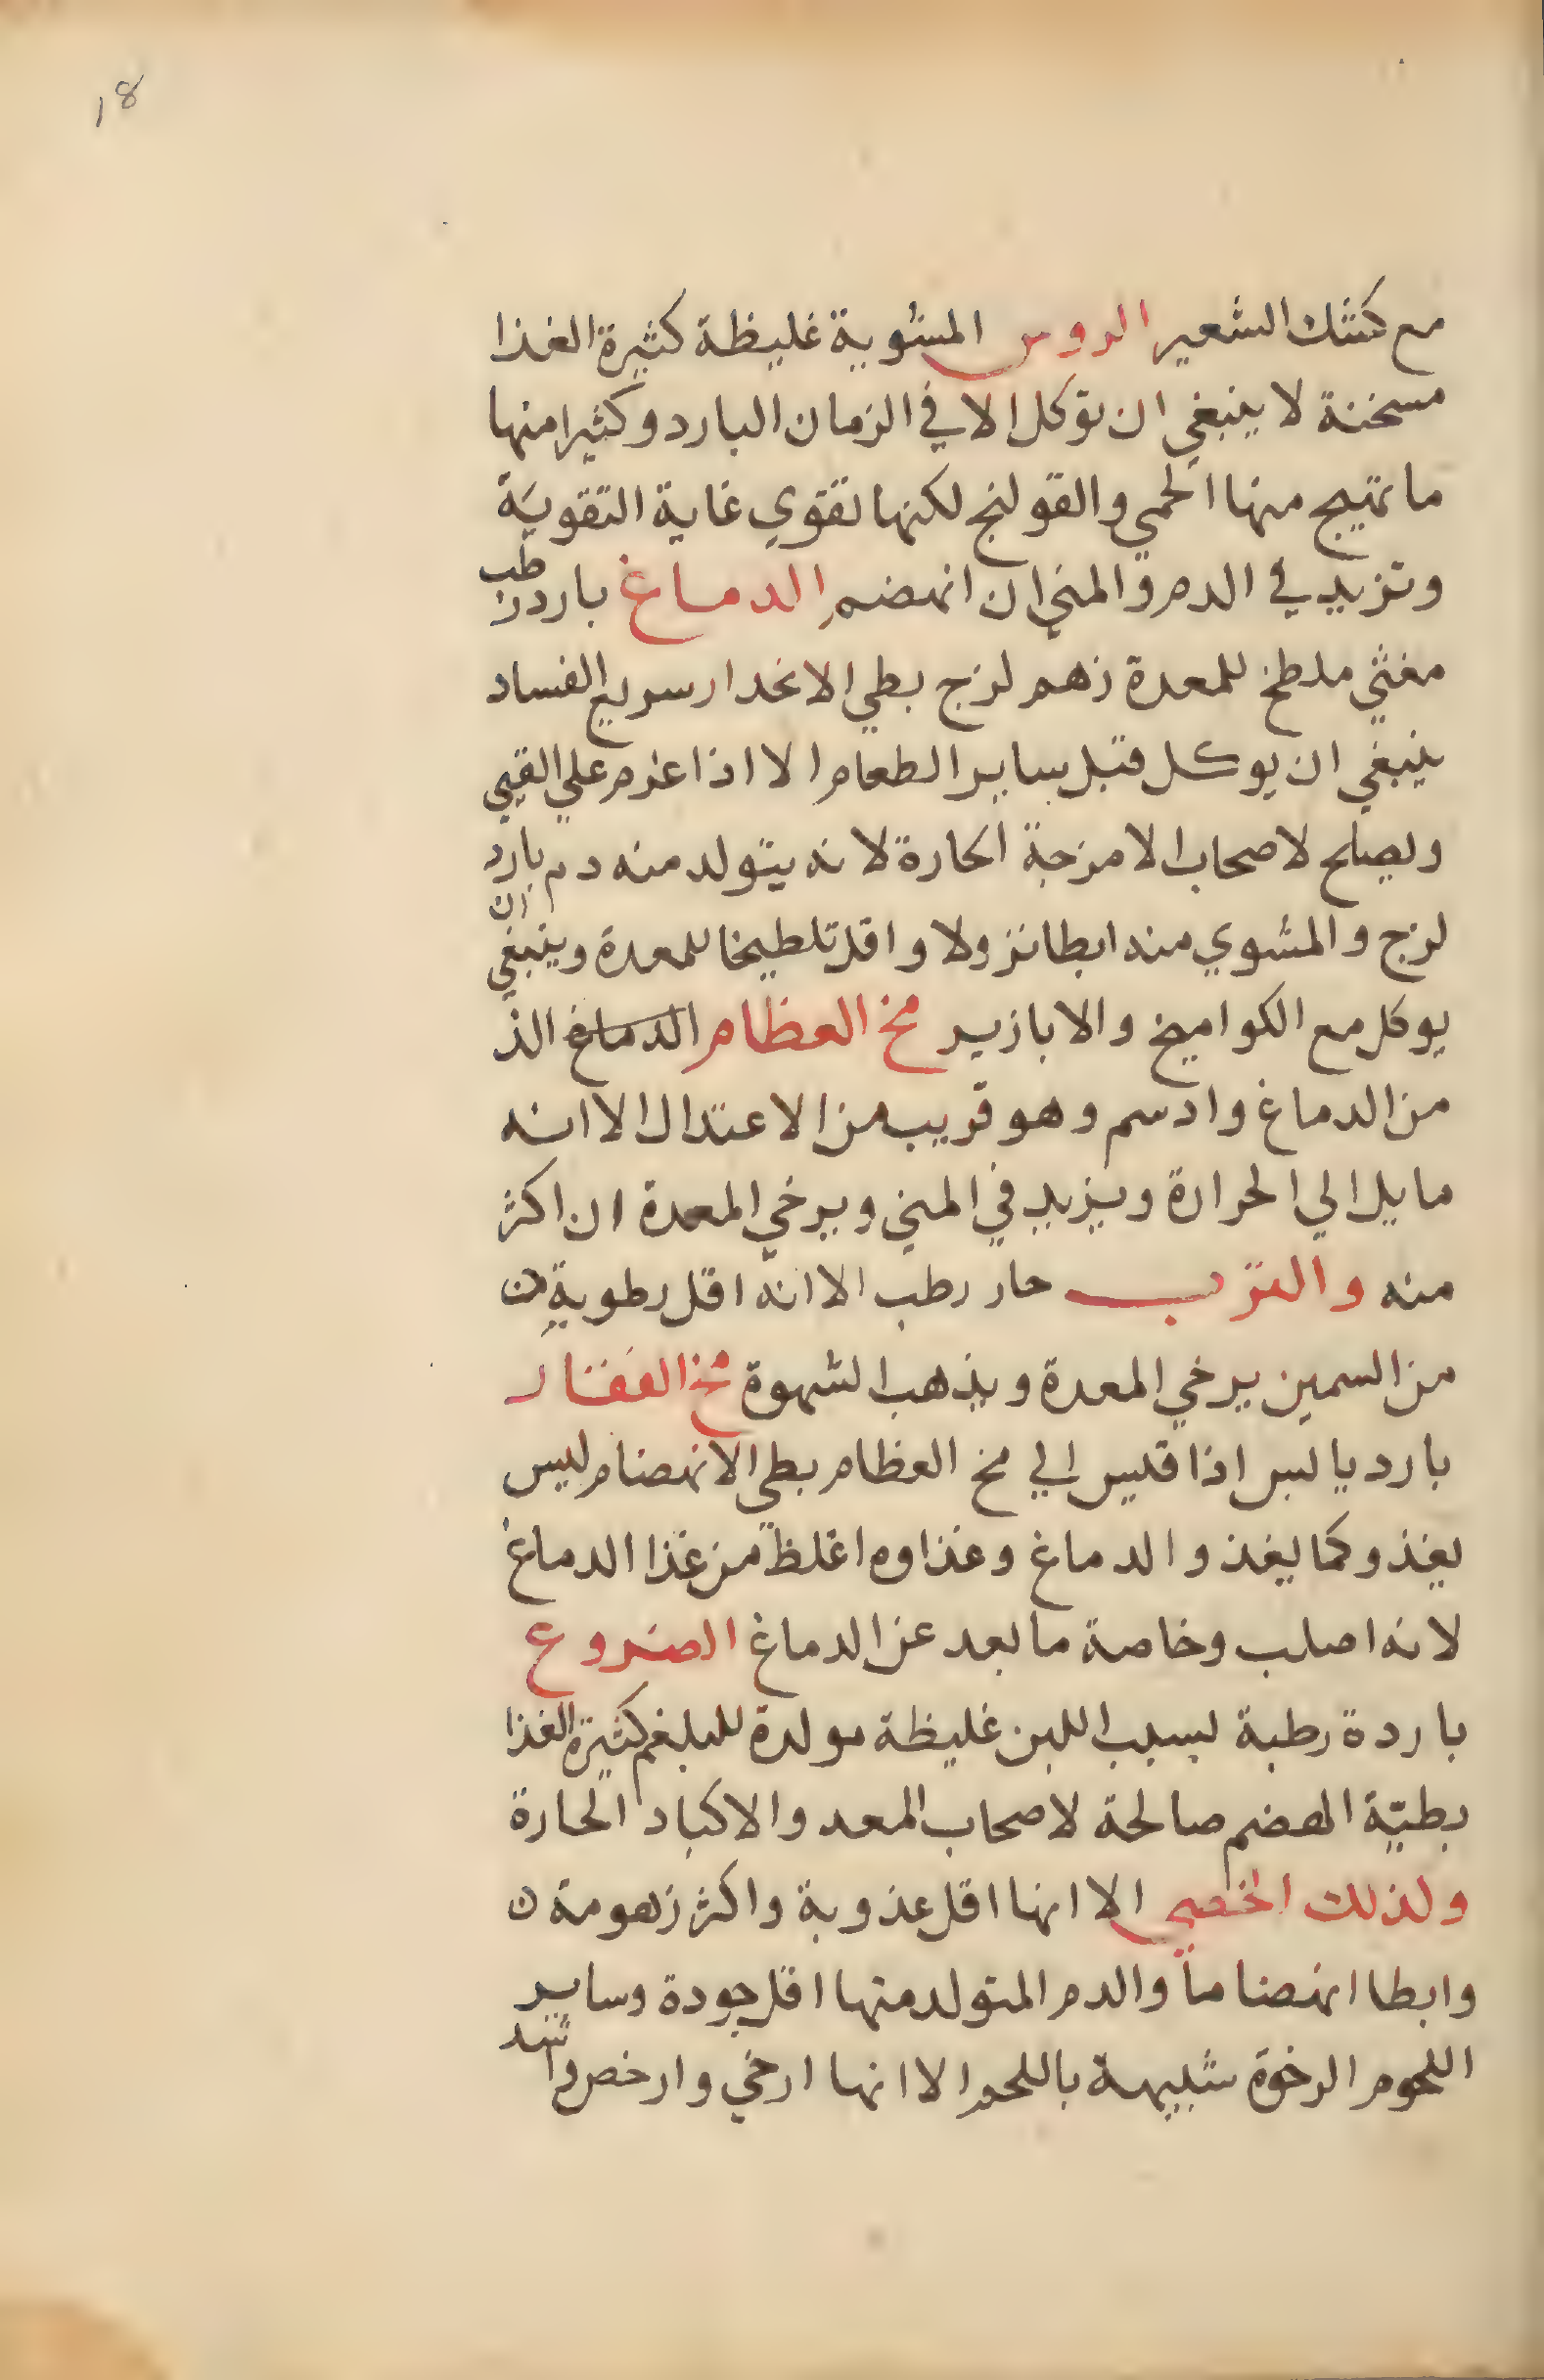 18
مع كشك الشعير الروس المشوية غليظة كثيرة الغذا
مسخنة لا ينبغي ان توكل الا في الزمان البارد وكثيرا منها
ما تهيج منها الحمي والقولنج لكنها تقوي غاية التقوية
وتزيد في الدم والمني ان انهضم الدماغ بارد رطب
مغثي ملطخ للمعدة زهم لزج بطي الانحدار سريع الفساد
ينبغي ان يوكل قبل ساير الطعام الا اذا عزم علي القيي
ويصلح لاصحاب الامزجة الحارة لانه يتولد منه دم بارد
لزج والمشوي منه ابطا نزولا واقل تلطيخا للمعدة وينبغي ان
يوكل مع الكواميخ والابازير مخ العظام الدماغ الذ
من الدماغ وادسم وهو قريب من الاعتدال الا انه
مايل الي الحرارة ويزيد في المني ويرخي المعدة ان اكثر
منه والثرب حار رطب الا انه اقل رطوبة ن
من السمين يرخي المعدة ويذهب الشهوة مخ الفقار
بارد يابس اذا قيس الي مخ العظام بطي الانهضام ليس
يغذو كما يغذو الدماغ وغذاوه اغلظ من غذا الدماغ
لانه اصلب وخاصة ما بعد عن الدماغ الضروع
باردة رطبة لسبب اللبن غليظة مولدة للبلغم كثيرة الغذا
بطيّة الهضم صالحة لاصحاب المعد والاكباد الحارة
ولذلك الخصي الا انها اقل عذوبة واكثر زهومة ن
وابطا انهضاماً والدم المتولد منها اقل جودة وساير
اللحوم الرخوة شبيهة باللحم الا انها ارخي وارخص و